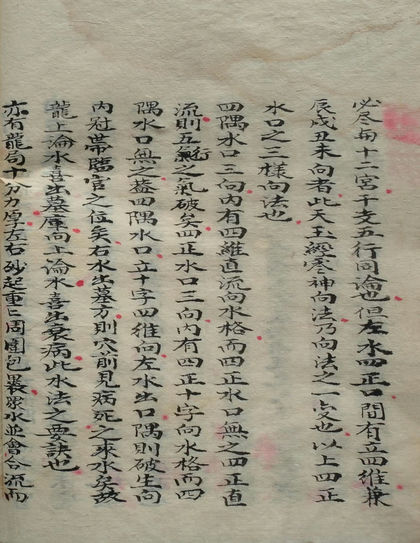 必尽每十二宮干支五行同論也但左水四正口間有立四維兼
辰戌丑未向者此天玉經零神向法乃向法之一變也以上四正
水口之三樣向法也
四隅水口三向內有四維直流向水格而四正水口無之四正直
流則五鬼之氣破矣四正水口三向內有四正十字向水格而四
隅水口無之蓋四隅水口立十字四維向左水出口隅則破生向
內冠帶臨官之位矣右水出墓方則穴前見病死之來水矣故
龍上論水喜出墓庫向上論水喜出衰病此水法之要訣也
亦有龍局十分力厚左右砂起重二周圍包裹衆水並會合流而